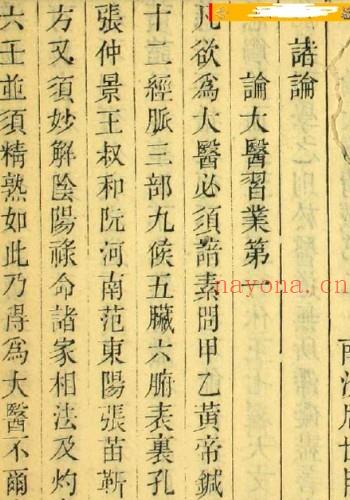 諸論
論大醫習業第一
凡欲爲大醫必須諳素問甲乙黃帝鍼
十二經脈三部九候五臟六腑表裏孔
張仲景王叔和阮河南范東陽張苗靳
方又須妙解陰陽祿命諸家相法及灼
六壬並須精熟如此乃得爲大醫不爾
nayona.cn